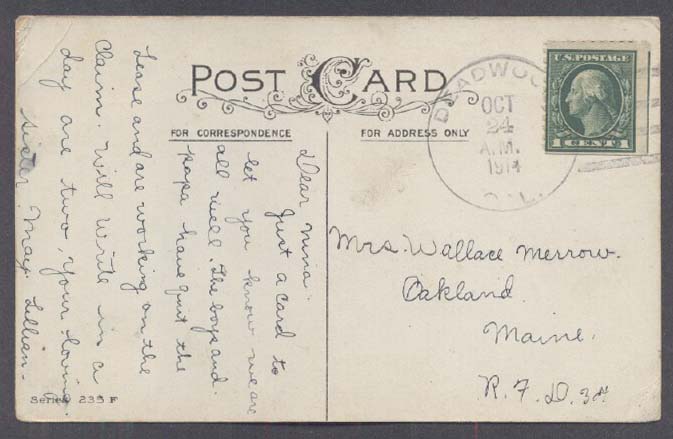 POST CARD
FOR CORRESPONDENCE
FOR ADDRESS ONLY
Dear Nina.
Just a card to
let you know we are
all well. The boys and
papa have quit the
lease and are working on the
Claim. Will write in a
day are two, your loving
sister. May Lillian.
Series 235 F
DEADWOOD
OCT
24
A.M.
1914
CAL.
U.S. POSTAGE
1 CENT 1
Mrs. Wallace Merrow.
Oakland.
Maine.
R. F. D. 38